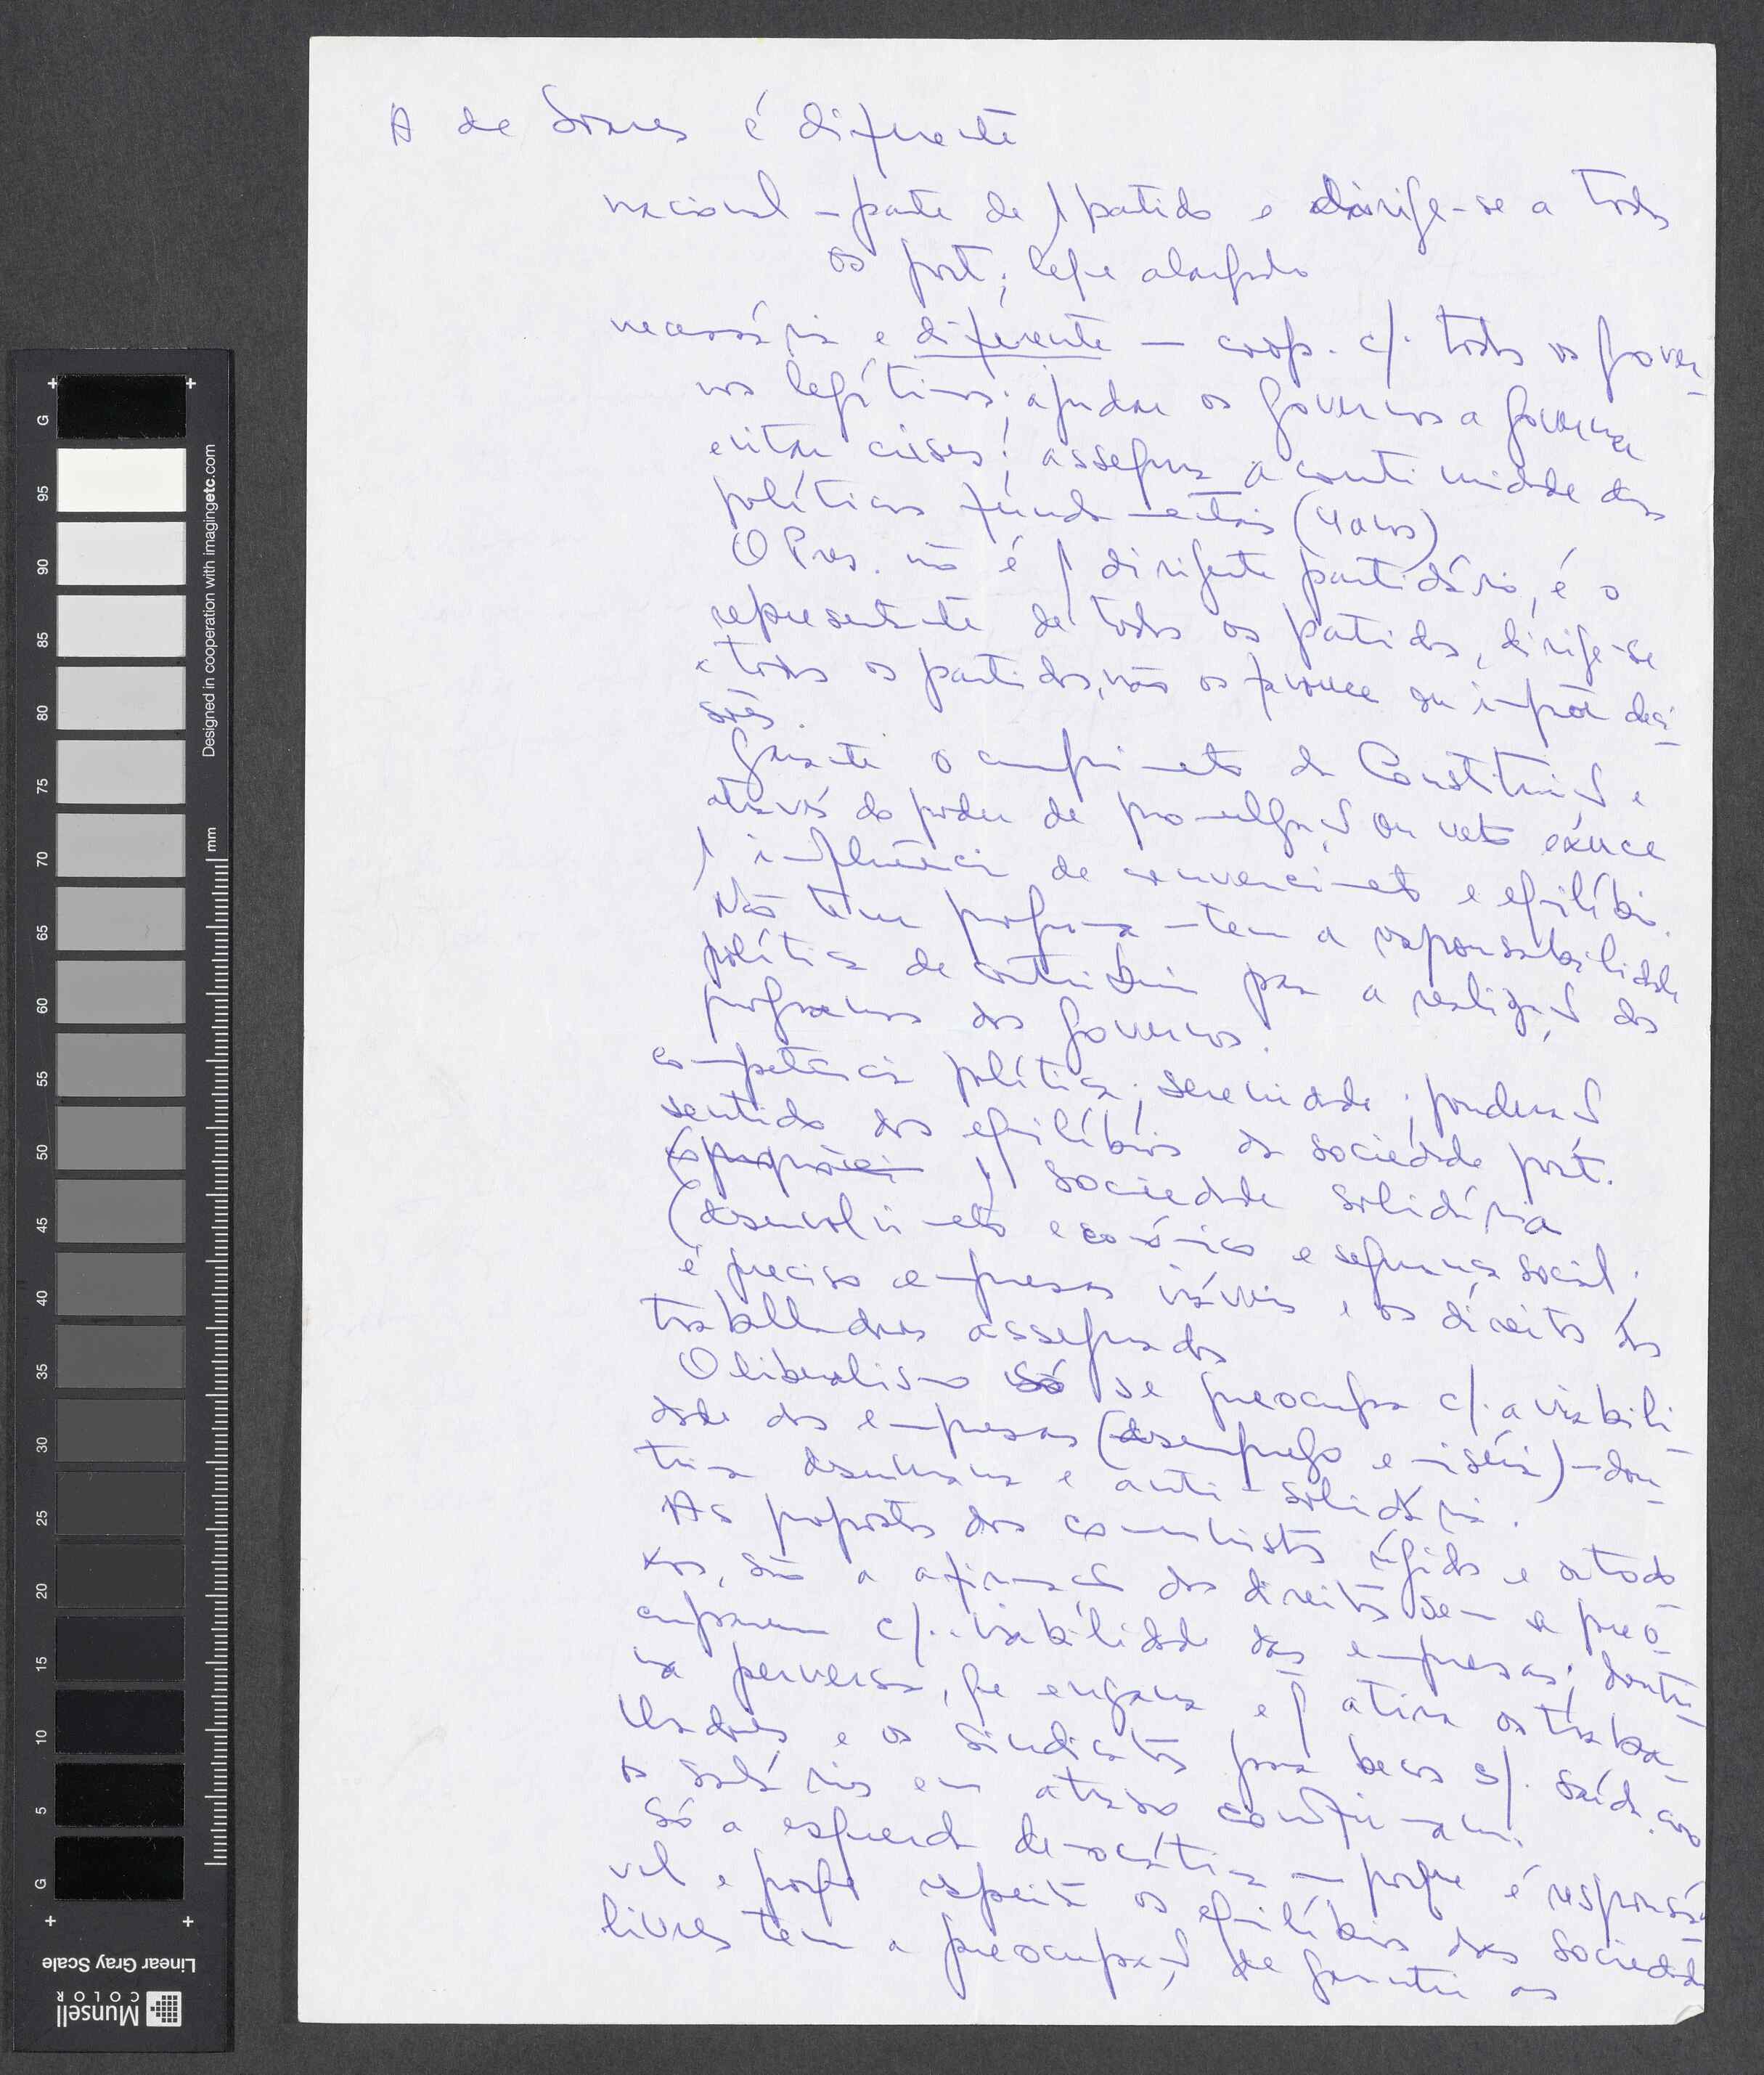 A de Soares é diferente
nacional – parte de 1 partido e dirige-se a todos
os port.; leque alargado
necessária e diferente – coop. c/. todos os gover-
nos legítimos; ajudar os governos a governar
evitar crises; assegura a continuidade das
políticas fundamentais (4 anos)
O Pres. não é 1 dirigente partidário, é o
representante de todos os partidos, dirige-se
a todos os partidos, não os favorece ou impõe deci-
sões.
Garante o cumprimento da Constituição e
através do poder de promulgação ou veto exerce
1 influência de convencimento e equilíbrio.
Não tem programa – tem a responsabilidade
política de contribuir para a realização dos
programas dos governos.
competência política; serenidade; ponderação
sentido dos equilíbrios da sociedade port.
1 sociedade solidária
(desenvolvimento económico e segurança social;
é preciso empresas viáveis e os direitos dos
trabalhadores assegurados
O liberalismo só se preocupa c/. a viabili-
dade das empresas (desemprego e miséria) – dou-
trina desumana e anti-solidária.
As propostas dos comunistas rígidos e ortodo-
xos, são a afirmação dos direitos sem se preo-
cuparem c/. viabilidade das empresas; doutri-
na perversa, que engana e atira os traba-
lhadores e os sindicatos para becos s/. saída, como
os salários em atraso confirmam.
Só a esquerda democrática – porque é responsá-
vel e porque respeita os equilíbrios das sociedades
livres tem a preocupação de garantir as